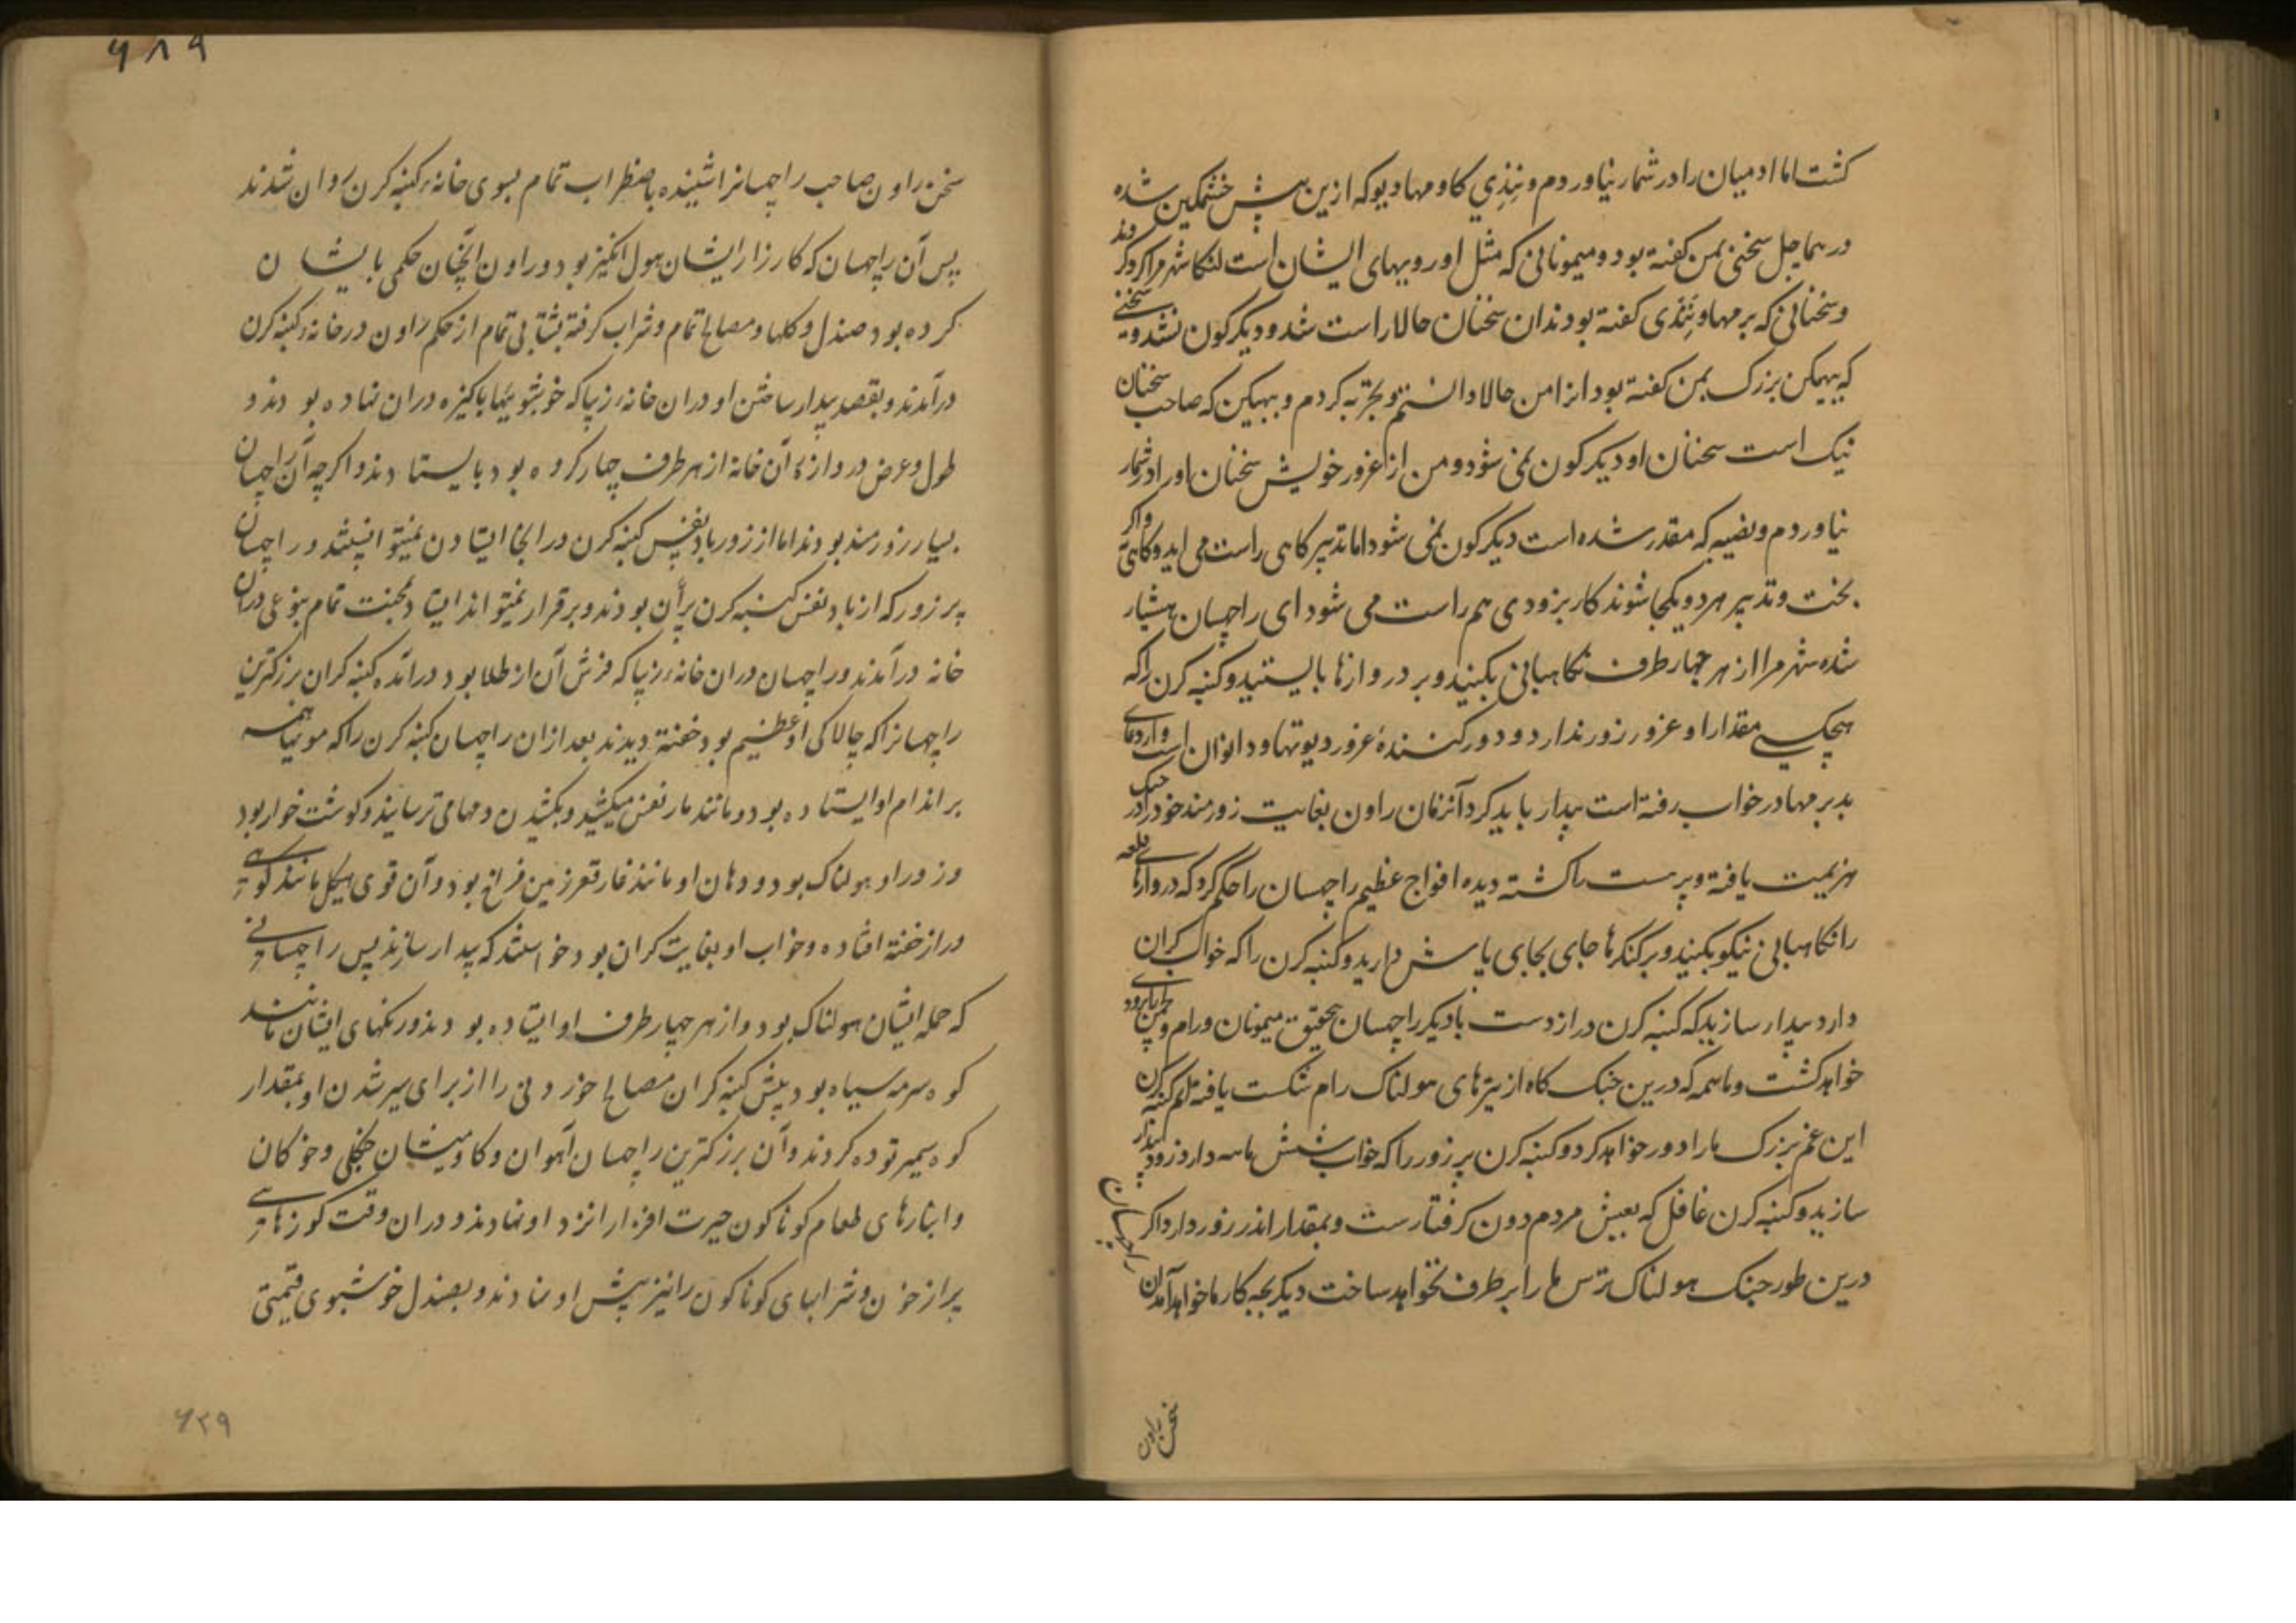 کشت اما ادمیان را در شمار نیاوردم و نِندِی کاو مهادیو که ازین پیش خشمکین شده
در هماچل سخنی بمن کفته بود و میمونانی که مثل او رویهای ایشان است لنکا شهر مرا کرد کردند
و سخنانی که برمها و نندی کفته بودند ان سخنان حالا راست شد و دیکرکون نشد و سخنی
که بهیکن بزرک بمن کفته بود انرا من حالا دانستم و تجربه کردم و بهیکن که صاحب سخنان
نیک است سخنان او دیکرکون نمی شود و من از غرور خویش سخنان او را در شمار
نیاوردم و نصیبه که مقدر شده است دیکرکون نمی شود اما تدبیر کاهی راست می اید و کاهی و اکر
بخت و تدبیر هر دو یکجا شوند کار بزودی هم راست می شود ای راچهسان هشیار
شده شهر مرا از هر چهار طرف نکاهبانی بکنید و بر دروازها بایستید و کنبه کرن را که
هیچکسی مقدار او غرور زور ندارد و دور کنندهٔ غرور دیوتها و دانوان است و از دعای
بد برمها در خواب رفته است بیدار باید کرد آنزمان راون بغایت زورمند خود را در جنک
هزیمت یافته و پرهست را کشته دیده افواج عظیم راچهسان را حکم کرد که دروازهای قلعه
را نکاهبانی نیکو بکنید و بر کنکرها جای بجای پاس دارید و کنبه کرن را که خواب کران
دارد بیدار سازید که کنبه کرن دراز دست با دیکر راچهسان بتحقیق میمونان و رام و لچمن را بزودی
خواهد کشت و ما همه که درین جنک کاه از تیرهای هولناک رام شکست یافته ایم کنبه کرن
این غم بزرک ما را دور خواهد کرد و کنبه کرن پر زور را که خواب شش ماهه دارد زود بیدار
سازید و کنبه کرن غافل که بعیش مردم دون کرفتارست و بمقدار اندر زور دارد اکر
درین طور جنک هولناک ترس ما را بر طرف نخواهد ساخت دیکر بچه کار ما خواهد آمد ان
راچهسان
سخن راون
۶۸۹
سخن راون صاحب راچهسانرا شنیده باضطراب تمام بسوی خانهٔ کنبه کرن روان شدند
پس آن راچهسان که کارزار ایشان هول انکیز بود و راون آنچنان حکمی بایشان
کرده بود صندل و کلها و مصالح تمام و شراب کرفته بشتابی تمام از حکم راون در خانهٔ کنبه کرن
درآمدند و بقصد بیدار ساختن او در ان خانهٔ زیبا که خوشبوئیها پاکیزه دران نهاده بودند و
طول و عرض دروازهٔ آن خانه از هر طرف چهار کروه بود بایستادند و اکرچه آن راچهسان
بسیار زورمند بودند اما از زور باد نفس کنبه کرن در انجا ایستادن نمیتوانستند و راچهسان
پر زور که از باد نفس کنبه کرن پران بودند و برقرار نمیتوانند ایستاد بمحنت تمام بنوعی دران
خانه درآمدند و راچهسان دران خانهٔ زیبا که فرش آن از طلا بود درآمده کنبه کران بزرکترین
راچهسانرا که چالاکی او عظیم بود خفته دیدند بعد ازان راچهسان کنبه کرن را که مویها همه
بر اندام او ایستاده بود و مانند مار نفس میکشید و بکشیدن دمها می ترسانید و کوشت خوار بود
و زور او هولناک بود و دهان او مانند غار قعر زمین فراخ بود و آن قوی هیکل مانند کوهی
دراز خفته افتاده و خواب او بغایت کران بود خواستند که بیدار سازند پس راچهسانی
که حمله ایشان هولناک بود و از هر چهار طرف او ایستاده بودند و رنکهای ایشان مانند
کوه سرمه سیاه بود پیش کنبه کران مصالح خوردنی را از برای سیر شدن او بمقدار
کوه سمیر توده کردند و آن بزرکترین راچهسان آهوان و کاومیشان جنکلی و خوکان
و انبارهای طعام کوناکون حیرت افزا را نزد او نهادند و دران وقت کوزهای
پر از خون و شرابهای کوناکون را نیز پیش او نهادند و بصندل خوشبوی قیمتی
۶۲۹